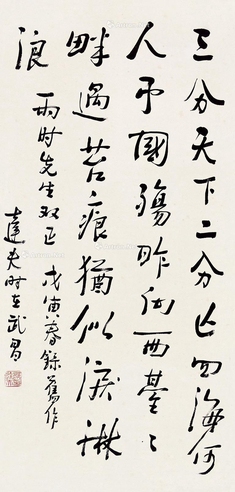 三分天下二分亡四海何
人弔國殤昨向西臺〻
畔過苔痕猶似淚淋
浪
雨时先生双正 戊寅春錄舊作
達夫时在武昌